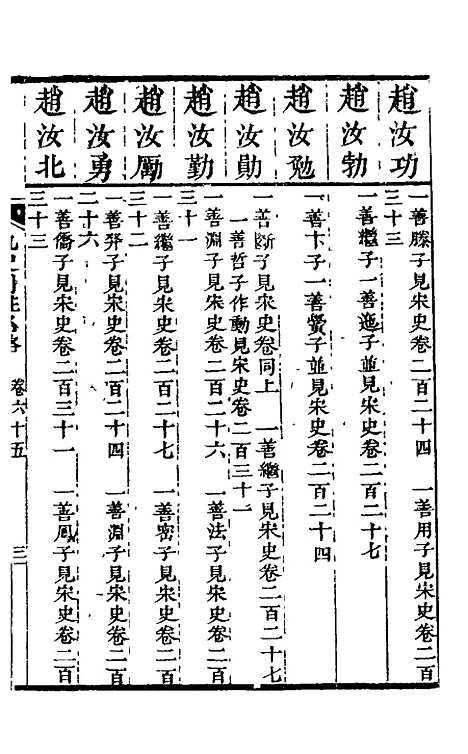 趙汝功
一善滕子見宋史卷二百二十四　一善用子見宋史卷二百
三十三
趙汝勃
一善繼子一善迤子並見宋史卷二百二十七
趙汝勉
一善卞子一善鸒子並見宋史卷二百二十四
趙汝勛
一善斷子見宋史卷同上　一善繼子見宋史卷二百二十七
一善哲子作動見宋史卷二百三十一
趙汝勤
一善淵子見宋史卷二百二十六　一善法子見宋史卷二百
三十一
趙汝勵
一善繼子見宋史卷二百二十七　一善密子見宋史卷二百
三十二
趙汝勇
一善羿子見宋史卷二百二十四　一善淵子見宋史卷二百
二十六
趙汝北
一善僑子見宋史卷二百三十一　一善鳳子見宋史卷二百
三十三
卷六十五
三